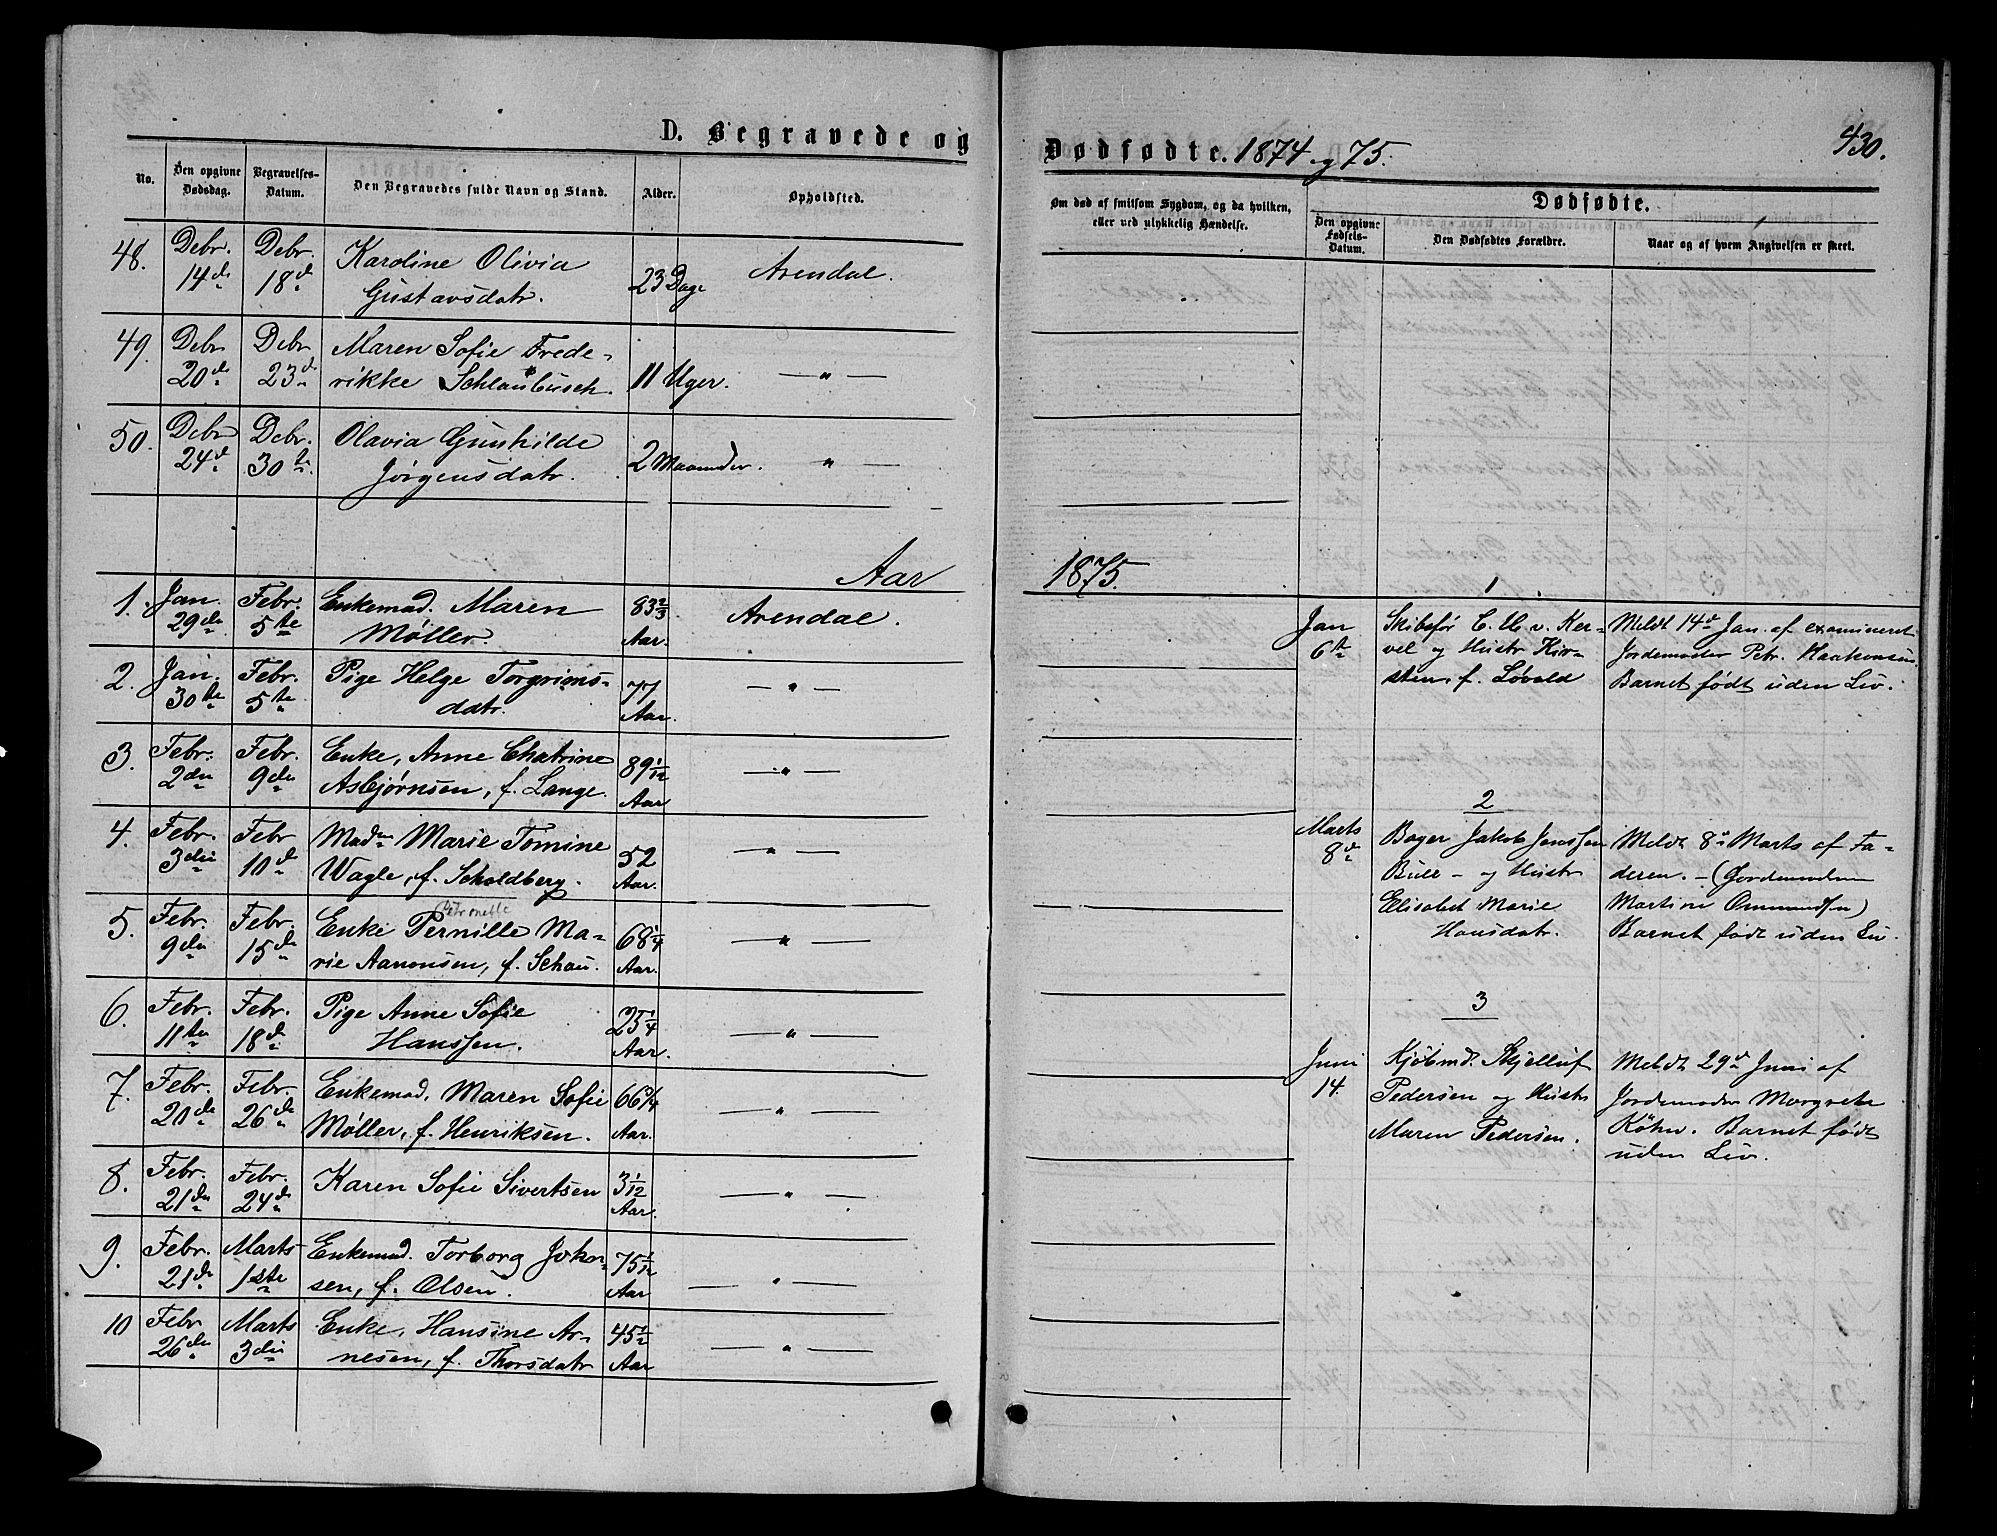 D. Begravede og
Dødfødte. 1874 og 75.
430.
No.
Den opgivne Dødsdag.
Begravelses-Datum.
Den Begravedes fulde Navn og Stand.
Alder.
Opholdsted.
Om død af smitsom Sygdom, og da hvilken,
eller ved ulykkelig Hændelse.
Dødfødte.
Den opgivne Fødsels-Datum.
Den Dødfødtes Forældre.
Naar og af hvem Angivelsen er skeet.
48. Debr. Debr. Karoline Olivia
14de 18de Gustavsdatr. 23 Dage Arendal.
49. Debr Debr Maren Sofie Frede-
20de 23de rikke Schlaubusch. 11 Uger. — " —
50. Debr Debr. Olavia Gunhilde
24de 30te Jørgensdatr. 2 Maaneder. " —
Aar 1875.
1. Jan. Febr. Enkemad. Maren 83 2/3 Arendal.
29de 5te Møller. Aar.
2. Jan. Febr. Pige Helge Torgrims- 77 — " —
30te 5te datr. Aar.
3. Febr. Febr. Enke, Anne Chatrine 89 1/12 — " —
2den 9de Asbjørnsen, f. Lange. Aar
4. Febr. Febr Madm Marie Tomine 52 — " —
3die 10de Wagle, f. Scholdberg. Aar.
Petronelle
5. Febr. Febr. Enke Pernille Ma- 68 3/4 — " —
9de 15de rie Aanonsen, f. Schau. Aar.
6. Febr. Febr. Pige Anne Sofie 25 1/4 — " —
11te 18de Hanssen. Aar.
7. Febr. Febr. Enkemad. Maren Sofie 66 3/4 — " —
20de 26de Møller, f. Henriksen. Aar.
8. Febr. Febr. Karen Sofie Sivertsen 3 1/12 — " —
21de 24de Aar.
9. Febr. Marts Enkemad. Torborg John- 75 1/12
21de 1ste sen, f. Olsen. Aar — " —
10 Febr Marts Enke, Hansine Ar- 45 1/2 — " —
26de 3die nesen, f. Thorsdatr Aar
1
Jan Skibsfør C. M. v. Ker- Meldt 14de Jan. af examineret
6te vel og Hustr Kir- Jordemoder Petr. Haakonsen.
sten, f. Løvold Barnet født uden Liv.
2
Marts Bager Jakob Jenssen Meldt 8de Marts af Fa-
8de Bull – og Hustr deren. – (Jordemoderen
Elisabet Marie Martine Ommundsen)
Hansdatr. Barnet født uden Liv.
3
Juni Kjøbmd. Skjelluf Meldt 29de Juni af
14. Pedersen og Hustr Jordemoder Margrete
Maren Pedersen. Köhn. Barnet født
uden Liv.